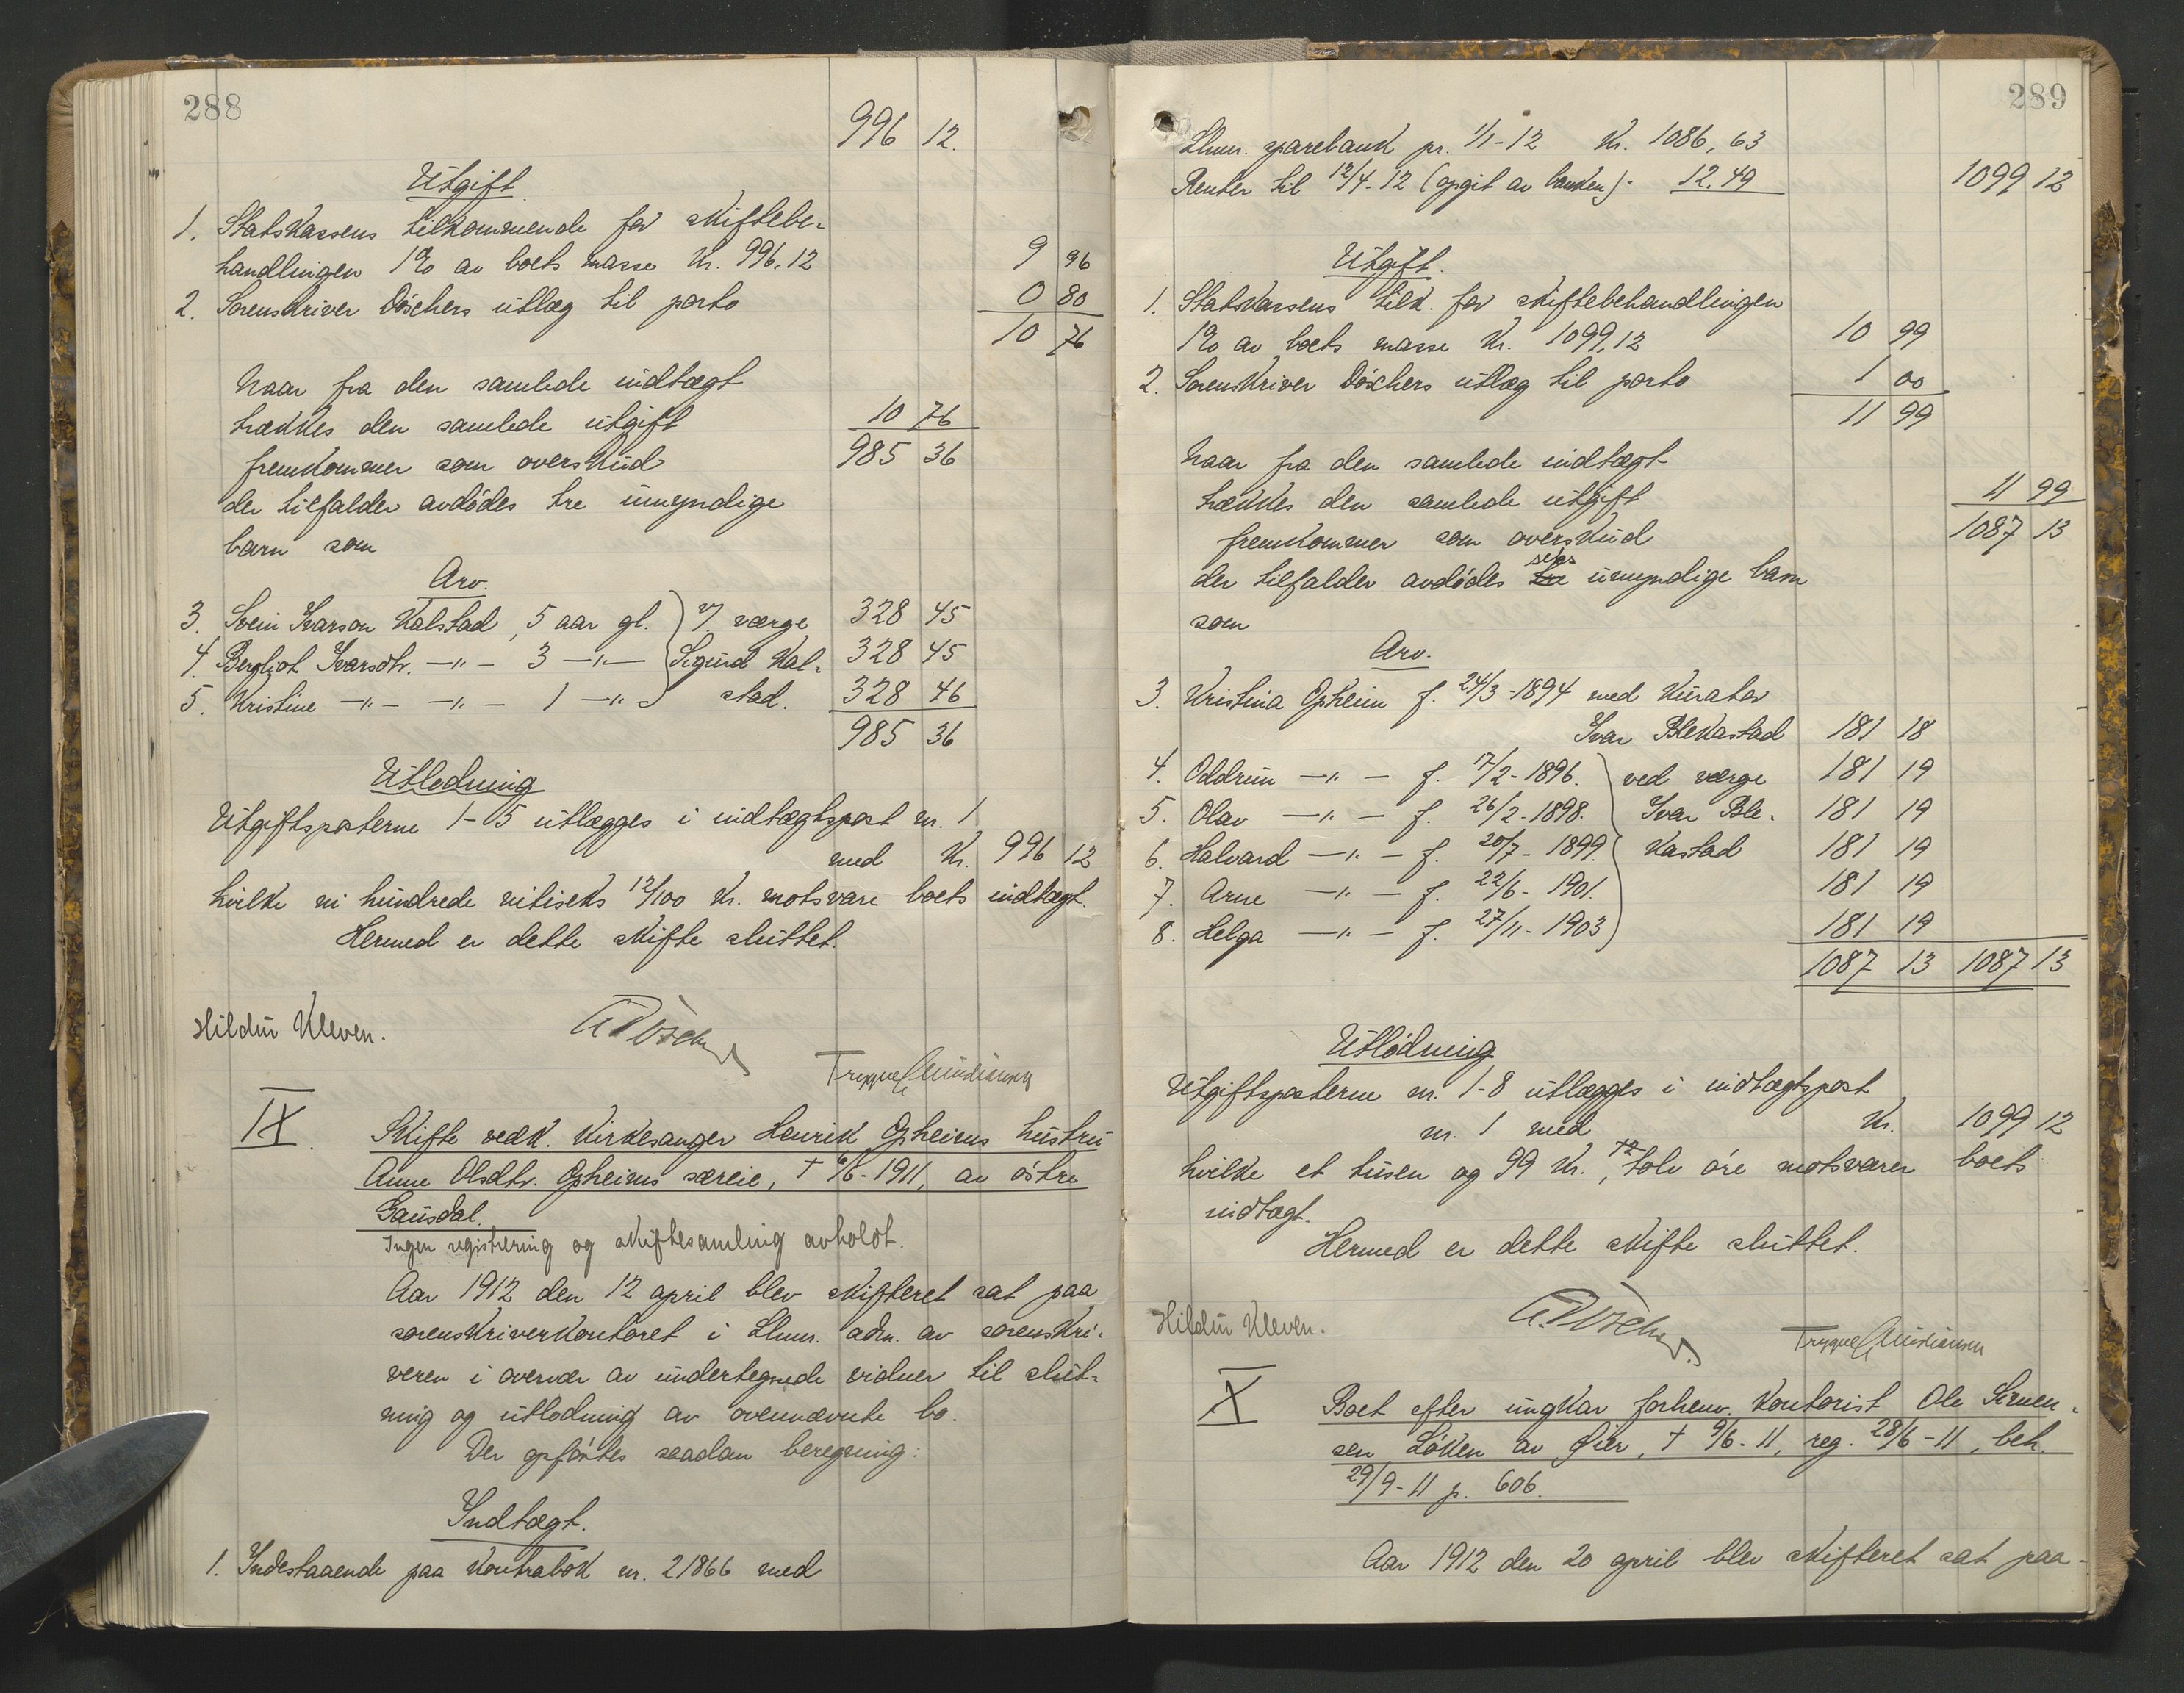 288
996 12.
Utgift
1. Statskassens tilkommende for skiftebe-
handlingen 1% av boets masse kr. 996.12 9 96
2. Sorenskriver Döschers utlæg til porto 0 80
10 76
Naar fra den samlede indtægt
trækkes den samlede utgift 10 76
fremkommer som overskud 985 36
der tilfalder avdødes tre umyndige
barn som
Arv.
3. Svein Ivarson Kalstad, 5 aar gl. v/ værge 328 45
4. Bergljot Ivarsdtr. -"- 3 -"- Sigurd Kal- 328 45
5. Kristine -"- -"- 1 -"- stad. 328 46
985 36
Utlodning
Utgiftsposterne 1-5 utlægges i indtægtspost nr. 1
med kr. 996 12
hvilke ni hundrede nitiseks 12/100 kr. motsvare boets indtægt.
Hermed er dette skifte sluttet.
Hildur Kleven.
IX.
Skifte vedk. kirkesanger Henrik Opheims hustru
Anne Olsdtr. Opheims særeie, † 6/6-1911, av östre
Gausdal.
Ingen registrering og skiftesamling avholdt.
Aar 1912 den 12 april blev skifteret sat paa
sorenskriverkontoret i Llmr. adm. av sorenskri-
veren i overvær av undertegnede vidner til slut-
ning og utlodning av ovennævnte bo.
Der opførtes saadan beregning:
Indtægt.
1. Indestaaende paa kontrabok nr. 21866 med
289
Llmr. sparebank pr. 1/1-12 kr. 1086,63
Renter til 12/4-12 (opgit av banken) - 12.49 1099 12
Utgift.
1. Statskassens tilk. for skiftebehandlingen
1% av boets masse kr. 1099,12 10 99
2. Sorenskriver Döschers utlæg til porto 1 00
11 99
Naar fra den samlede indtægt
trækkes den samlede utgift 11 99
fremkommer som overskud 1087 13
seks
der tilfalder avdödes tre umyndige barn
som
Arv.
3. Kristina Opheim f. 24/3-1894 med kurator
Ivar Blekastad 181 18
4. Oddrun -"- f. 7/2-1896. ved værge 181 19
5. Olav -"- f. 26/2-1898. Ivar Ble- 181 19
6. Halvard -"- f. 20/7-1899. kastad 181 19
7. Arne -"- f. 22/6-1901. 181 19
8. Helga -"- f. 27/11-1903 181 19
1087 13 1087 13
Utlödning
Utgiftsposterne nr. 1-8 utlægges i indtægtspost
nr. 1 med kr. 1099 12
hvilke et tusen og 99 kr., tolv öre motsvarer boets
indtægt.
Hermed er dette skifte sluttet.
Hildur Kleven.
X
Boet efter ungkar forhenv. kontorist Ole Simen-
sen Löken av Øier, † 9/6-11, reg. 28/6-11, beh.
29/9-11 p. 606.
Aar 1912 den 20 april blev skifteret sat paa